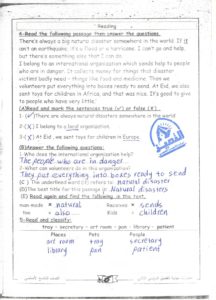 Reading
A-Read the following passage then answer the questions.
There's always a big natural disaster somewhere in the world. If it
isn't an earthquake, it's a flood or a hurricane. I can't go and help,
but there's something else that I can do.
I belong to an international organization which sends help to people
who are in danger. It collects money for things that disaster
victims badly need - things like food and medicine. Then we
volunteers put everything into boxes ready to send. At Eid, we also
sent toys for children in Africa, and that was nice. It's good to give
to people who have very little.
A)Read and mark the sentences true (✓) or false (X)
1-(✓)There are always natural disasters somewhere in the world
2-(X) I belong to a local organization.
3-(X) At Eid, we sent toys for children in Europe.
(B)Answer the following questions:
1-Who does the international organization help?
The people who are in danger
2-What can volunteers do in the organization?
They put everything into boxes ready to send
(C) The underlined word (it) refers to: natural disaster
(D)The best title for this passage is: Natural disasters
(E) Read again and find the following in the text.
man made × natural Receives × sends
too = also Kids = children
D-Read and classify:
tray - secretary - art room - pan - library - patient
Places Pots People
art room tray secretary
library pan patient